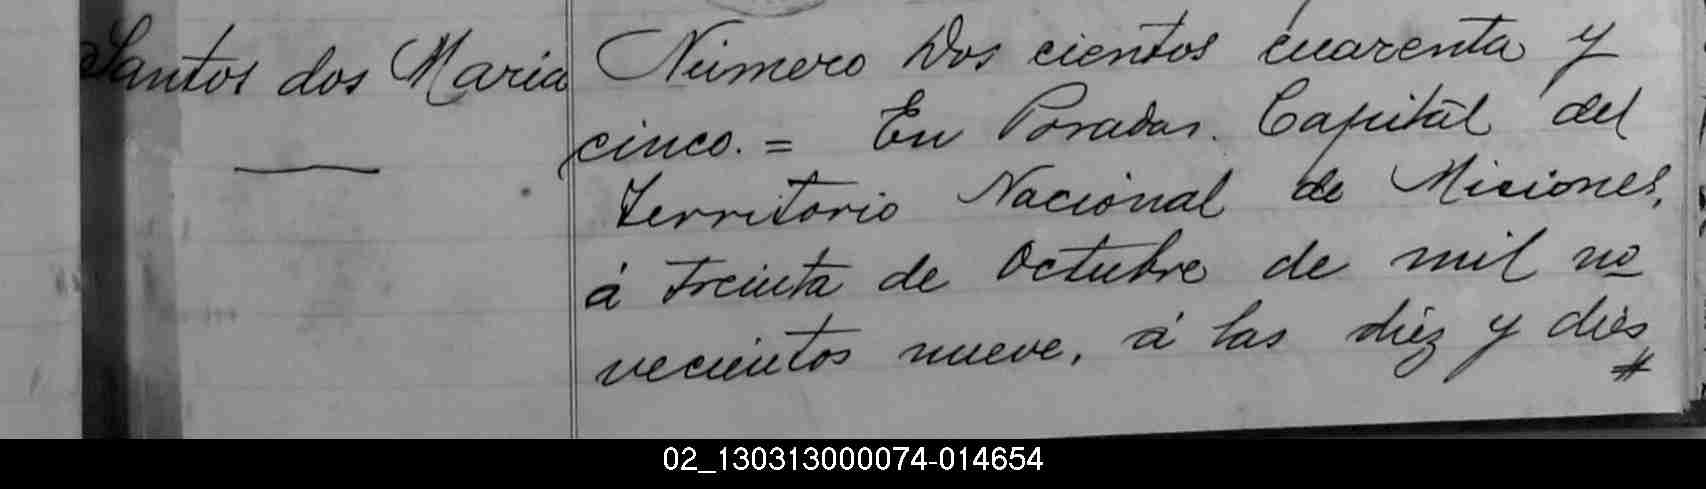 Santos dos Maria
Número Dos cientos cuarenta y
cinco. = En Posadas. Capital del
territorio Nacional de Misiones,
á treinta de Octubre de mil no
vecientos nueve, á las diéz y diés
#
02_130313000074-014654